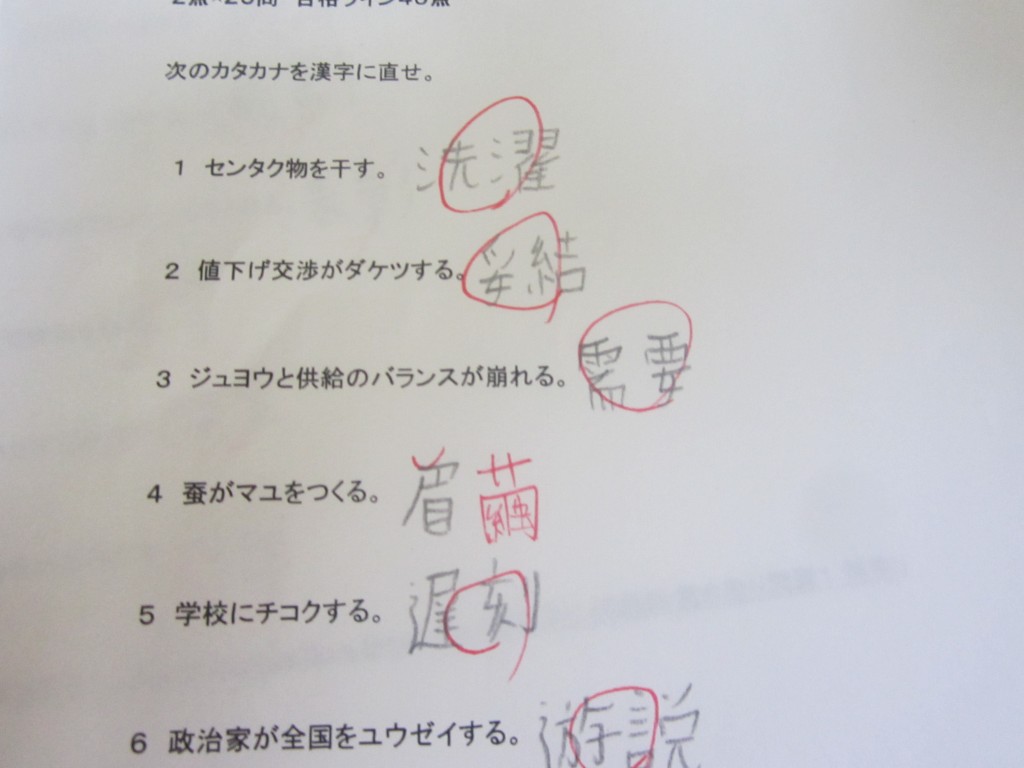 2点×25問 合格ライン40点
次のカタカナを漢字に直せ。
1 センタク物を干す。 洗濯
2 値下げ交渉がダケツする。 妥結
3 ジュヨウと供給のバランスが崩れる。 需要
4 蚕がマユをつくる。 眉 繭
5 学校にチコクする。 遅刻
6 政治家が全国をユウゼイする。 遊説